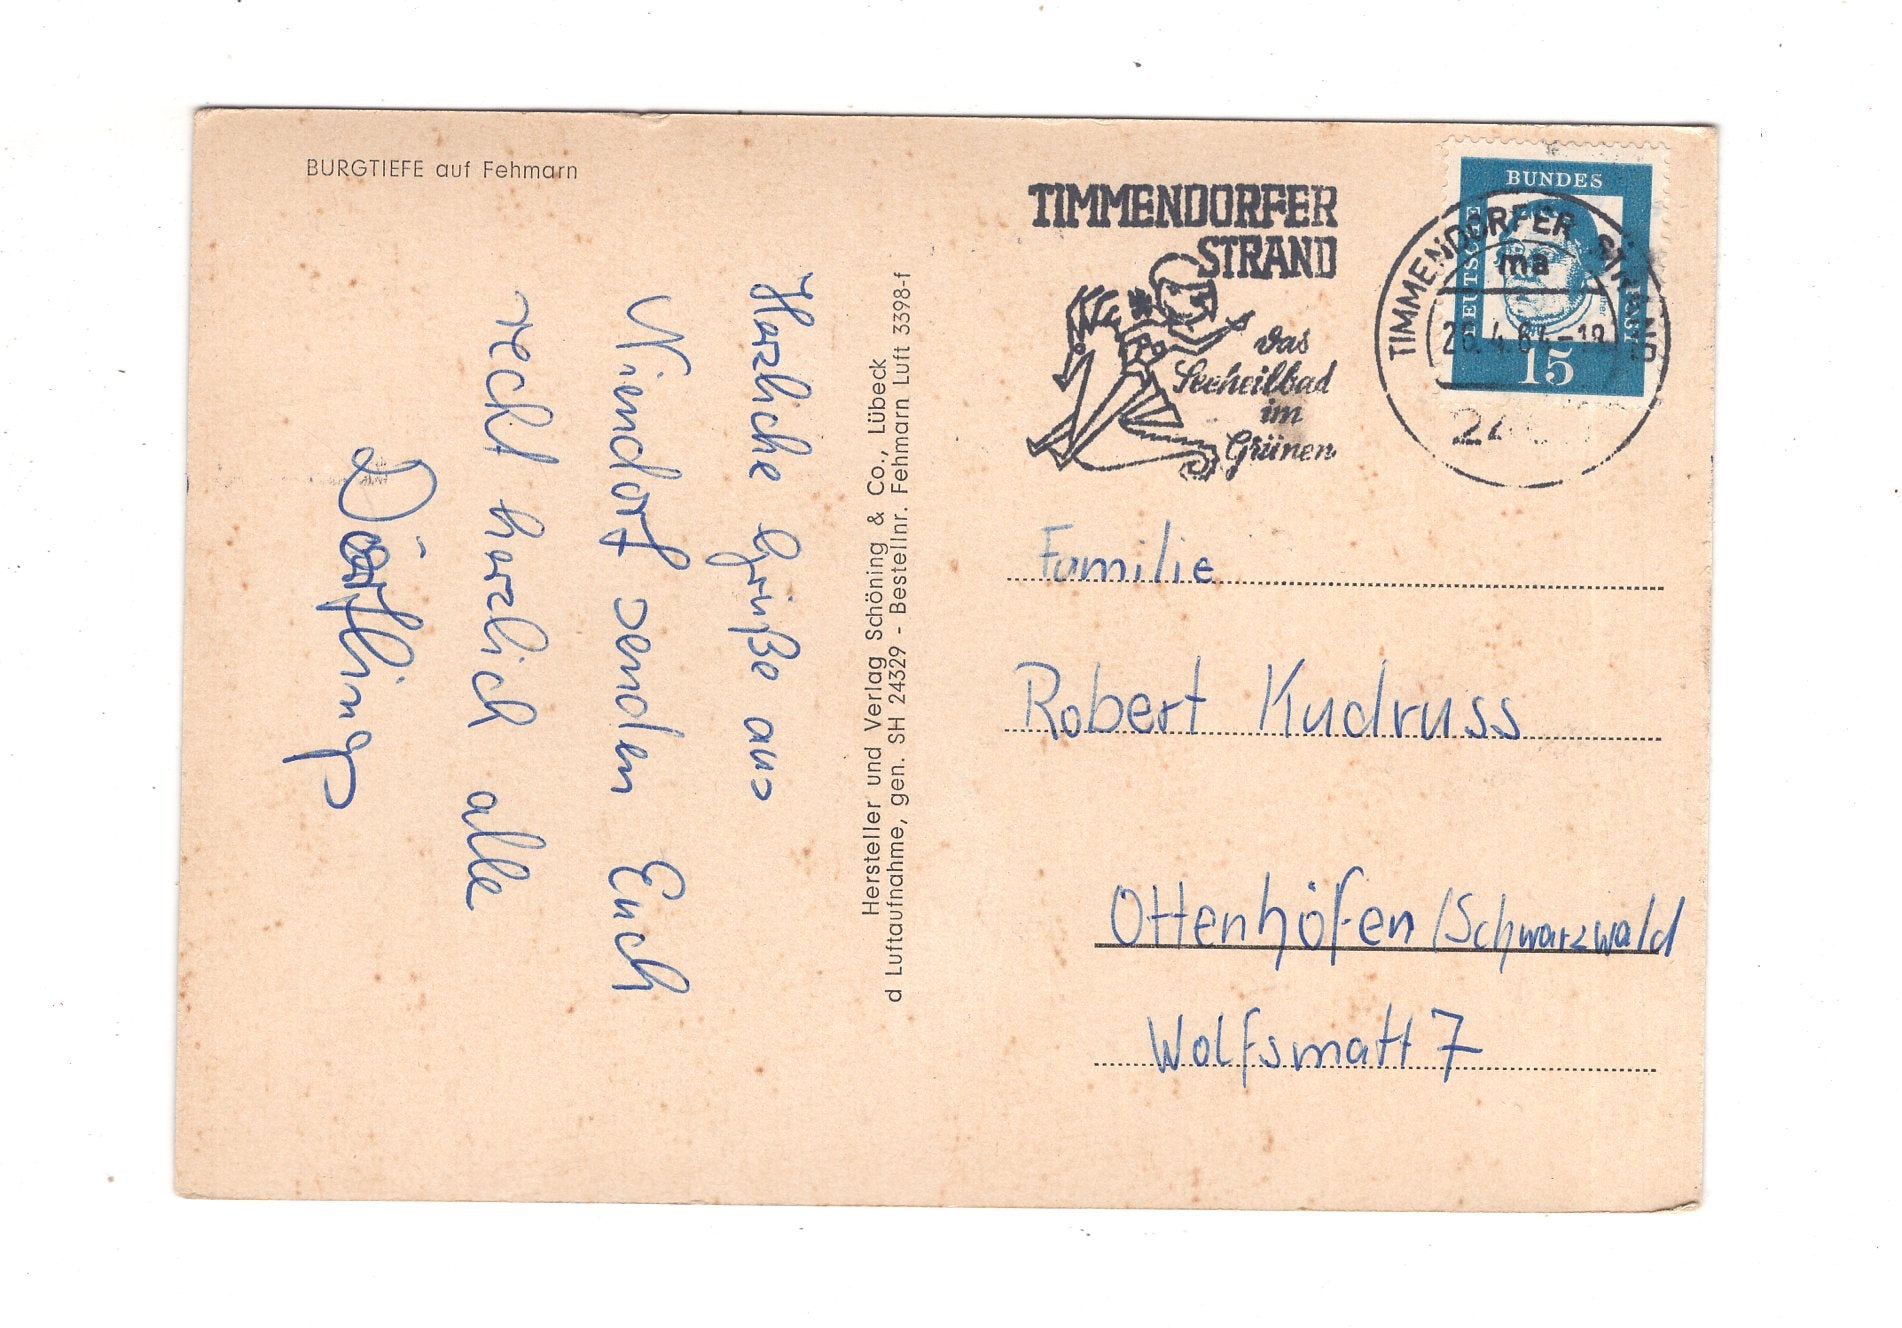 BURGTIEFE auf Fehmarn
Herzliche Grüße aus
Niendorf senden Euch
recht herzlich alle
Hersteller und Verlag Schöning & Co., Lübeck
d Luftaufnahme, gen. SH 24329 - Bestellnr. Fehmarn Luft 3398-f
TIMMENDORFER
STRAND
das
Seeheilbad
im
Grünen
TIMMENDORFER STRAND
ma
26.4.64-18
DEUTSCHE
BUNDES
POST
15
Familie
Robert Kudruss
Ottenhöfen/Schwarzwald
Wolfsmatt 7